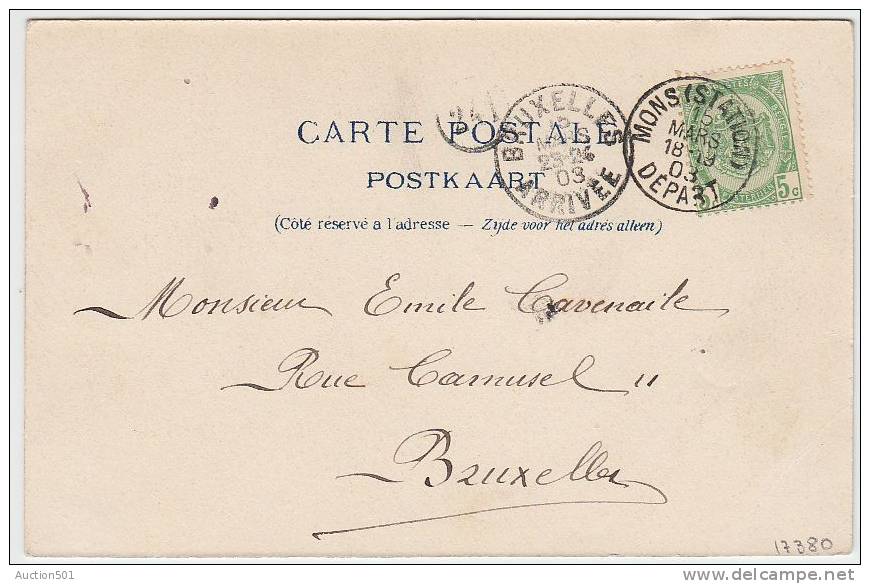 CARTE POSTALE
POSTKAART
(Côté réservé a l'adresse — Zyde voor het adres alleen)
24
BRUXELLES
5
MARS
23-24
03
ARRIVÉE
MONS (STATION)
5
MARS
03
DÉPART
5c
Monsieur Emile Cavenaile
Rue Camusel 11
Bruxelles
17380
Auction501
delcampe.net